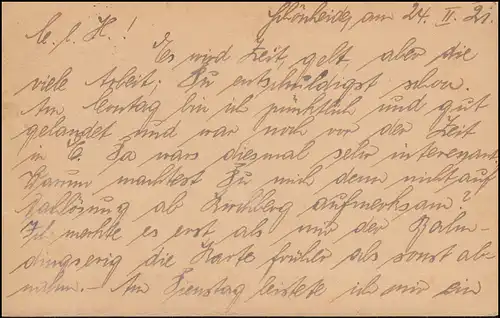 Schönheide, am 24. II. 21.
M. l. H.!
Es wird Zeit, gelt, aber die
viele Arbeit; Du entschuldigst schon.
Am Sonntag bin ich pünktlich und gut
gelandet und war noch vor der Zeit
in C. Da wars diesmal sehr interessant.
Warum machtest Du mich denn nicht auf
ab Kirchberg aufmerksam?
Ich merkte es erst als mir der Bahn-
die Karte früher als sonst ab-
nahm. – Am Dienstag leistete ich mir ein